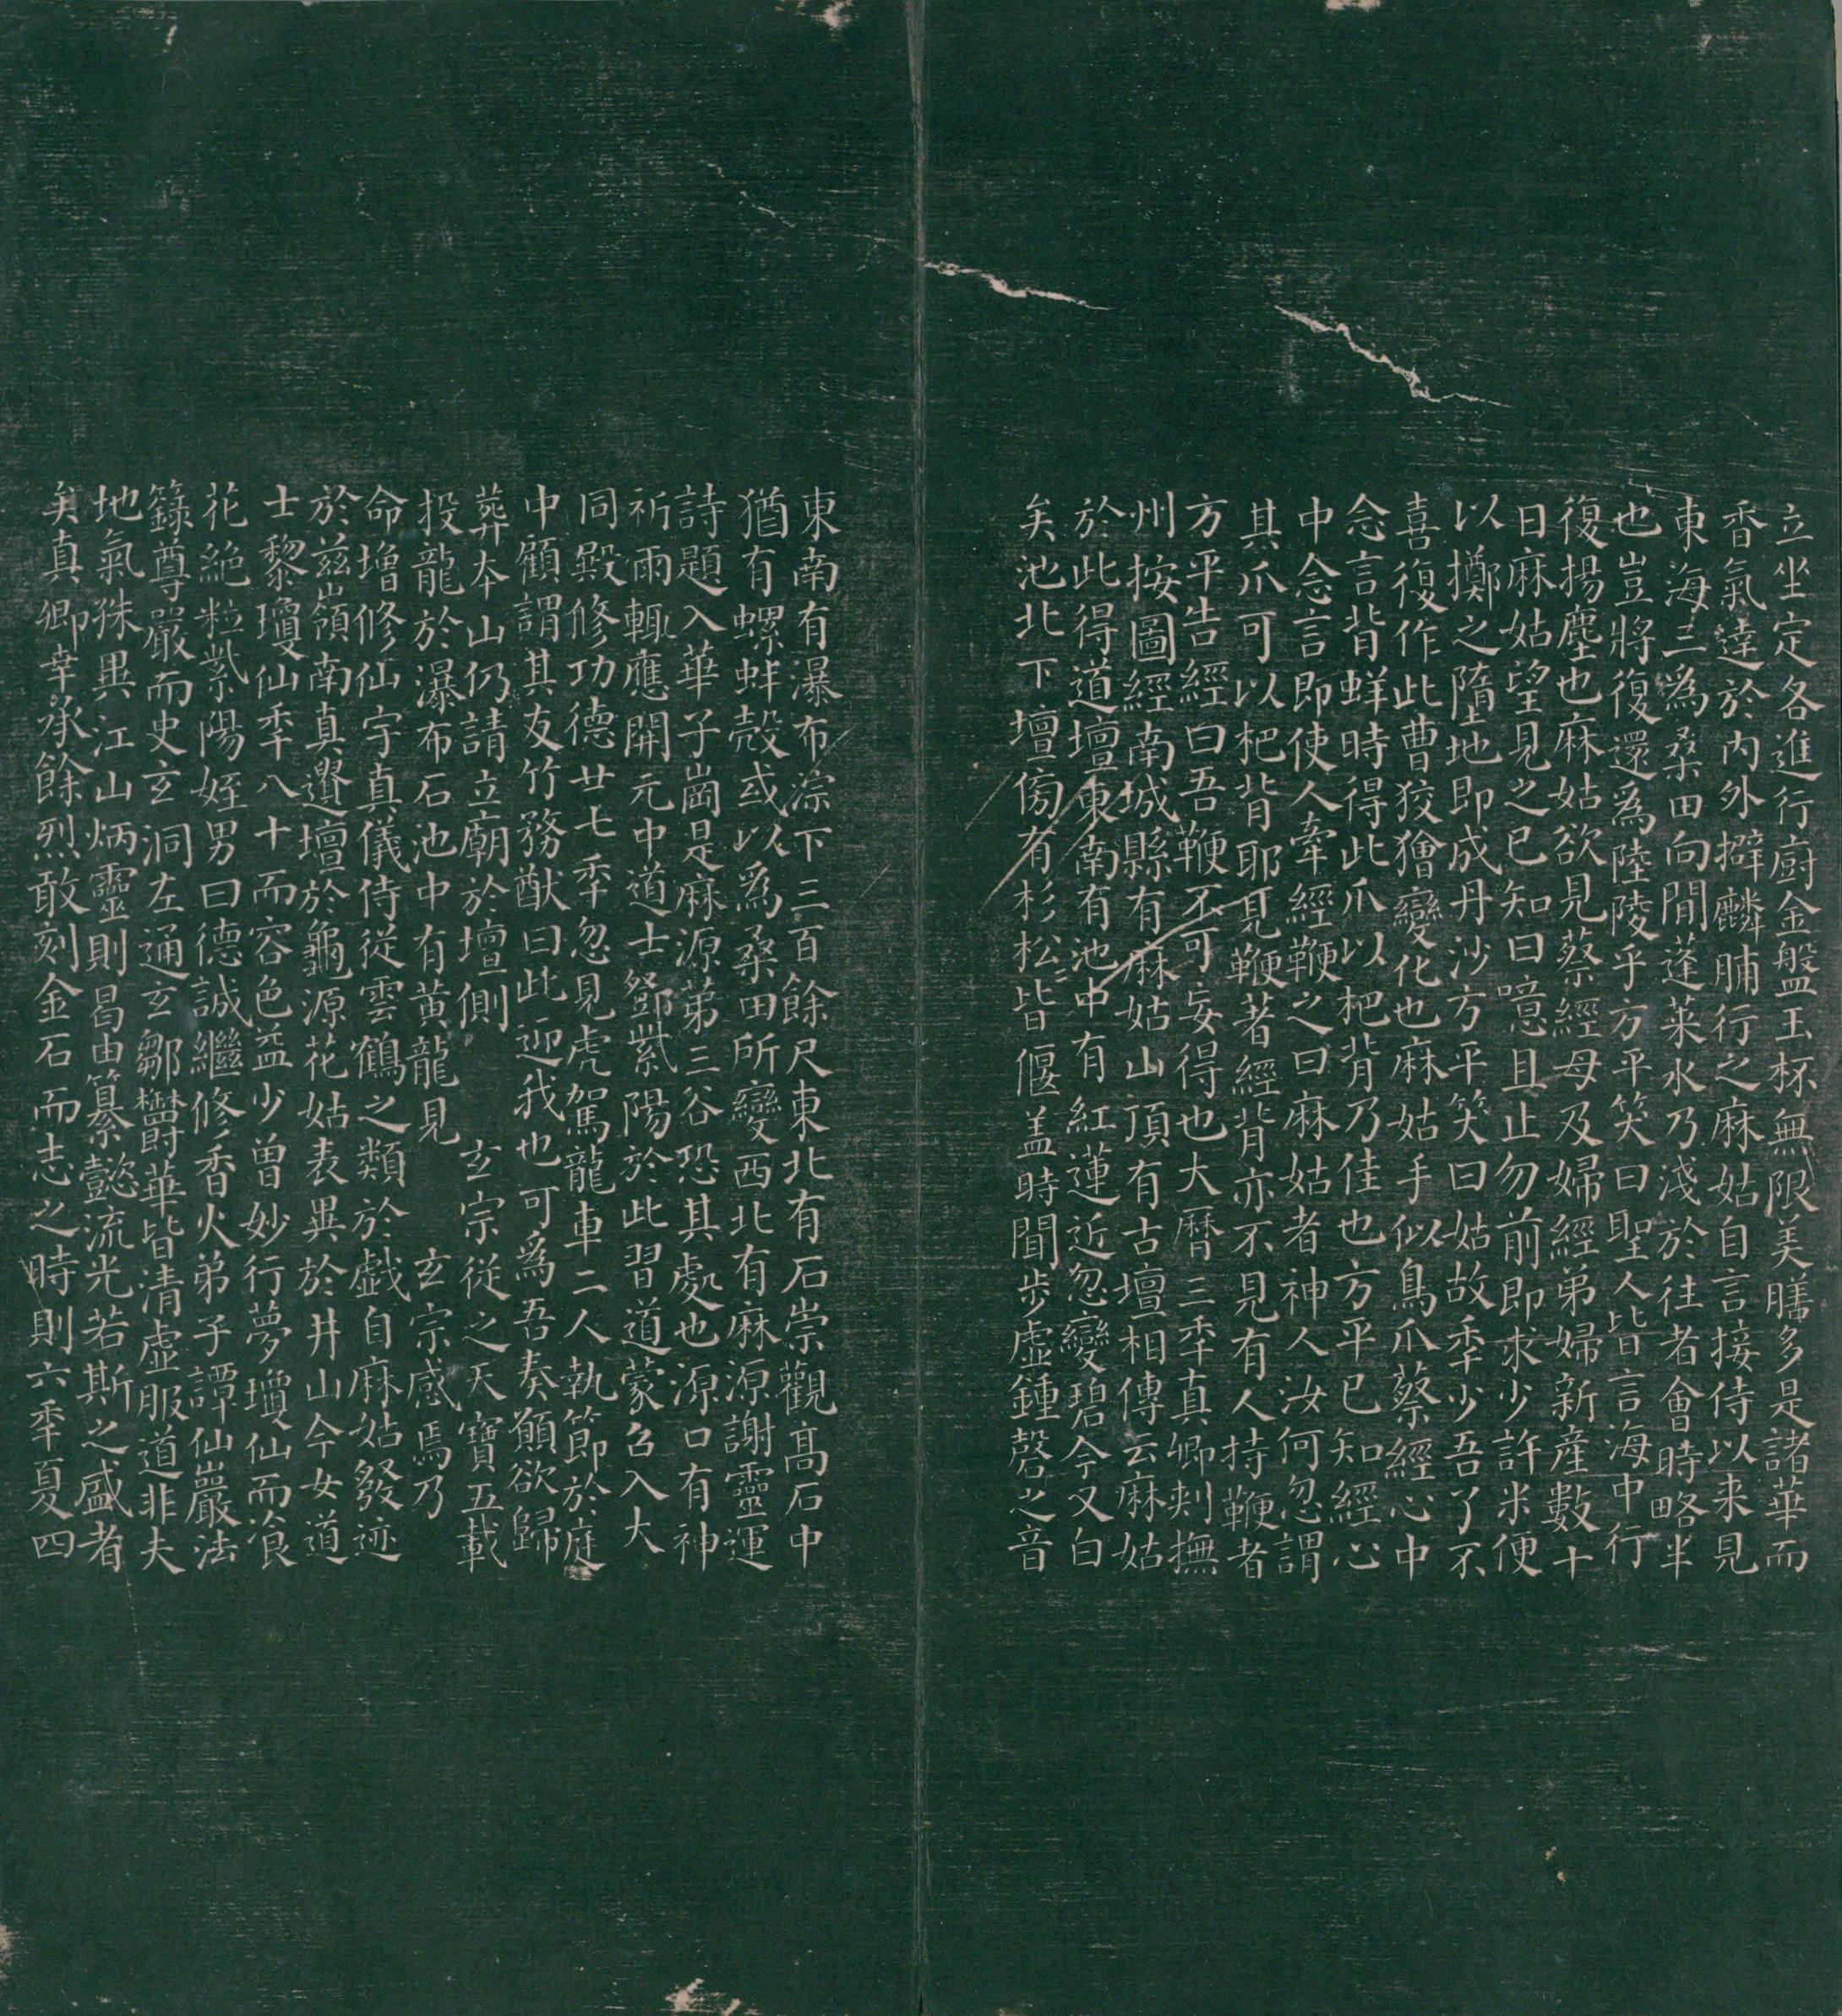 立坐定各進行廚金盤玉杯無限美膳多是諸華而
香氣達於內外擗麟脯行之麻姑自言接侍以來見
東海三為桑田向間蓬萊水乃淺於往者會時略半
也豈將復還為陸陵乎方平笑曰聖人皆言海中行
復揚塵也麻姑欲見蔡經母及婦經弟婦新產數十
日麻姑望見之已知曰噫且止勿前即求少許米便
以擲之墮地即成丹沙方平笑曰姑故秊少吾了不
喜復作此曹狡獪變化也麻姑手似鳥爪蔡經心中
念言背蛘時得此爪以杷背乃佳也方平已知經心
中念言即使人牽經鞭之曰麻姑者神人汝何忽謂
其爪可以杷背耶見鞭著經背亦不見有人持鞭者
方平告經曰吾鞭不可妄得也大曆三秊真卿刺撫
州按圖經南城縣有麻姑山頂有古壇相傳云麻姑
於此得道壇東南有池中有紅蓮近忽變碧今又白
矣池北下壇傍有杉松皆偃蓋時聞步虛鍾磬之音
東南有瀑布淙下三百餘尺東北有石崇觀高石中
猶有螺蚌殼或以為桑田所變西北有麻源謝靈運
詩題入華子崗是麻源第三谷恐其處也源口有神
祈雨輒應開元中道士鄧紫陽於此習道蒙召入大
同殿修功德廿七秊忽見虎駕龍車二人執節於庭
中顧謂其友竹務猷曰此迎我也可為吾奏願欲歸
葬本山仍請立廟於壇側 玄宗從之天寶五載
投龍於瀑布石池中有黃龍見 玄宗感焉乃
命增修仙宇真儀侍從雲鶴之類於戲自麻姑發迹
於茲嶺南真遺壇於龜源花姑表異於井山今女道
士黎瓊仙秊八十而容色益少曾妙行夢瓊仙而飡
花絕粒紫陽姪男曰德誠繼修香火弟子譚仙巖法
籙尊嚴而史玄洞左通玄鄒欝華皆清虛服道非夫
地氣殊異江山炳靈則曷由纂懿流光若斯之盛者
矣真卿幸承餘烈敢刻金石而志之時則六秊夏四